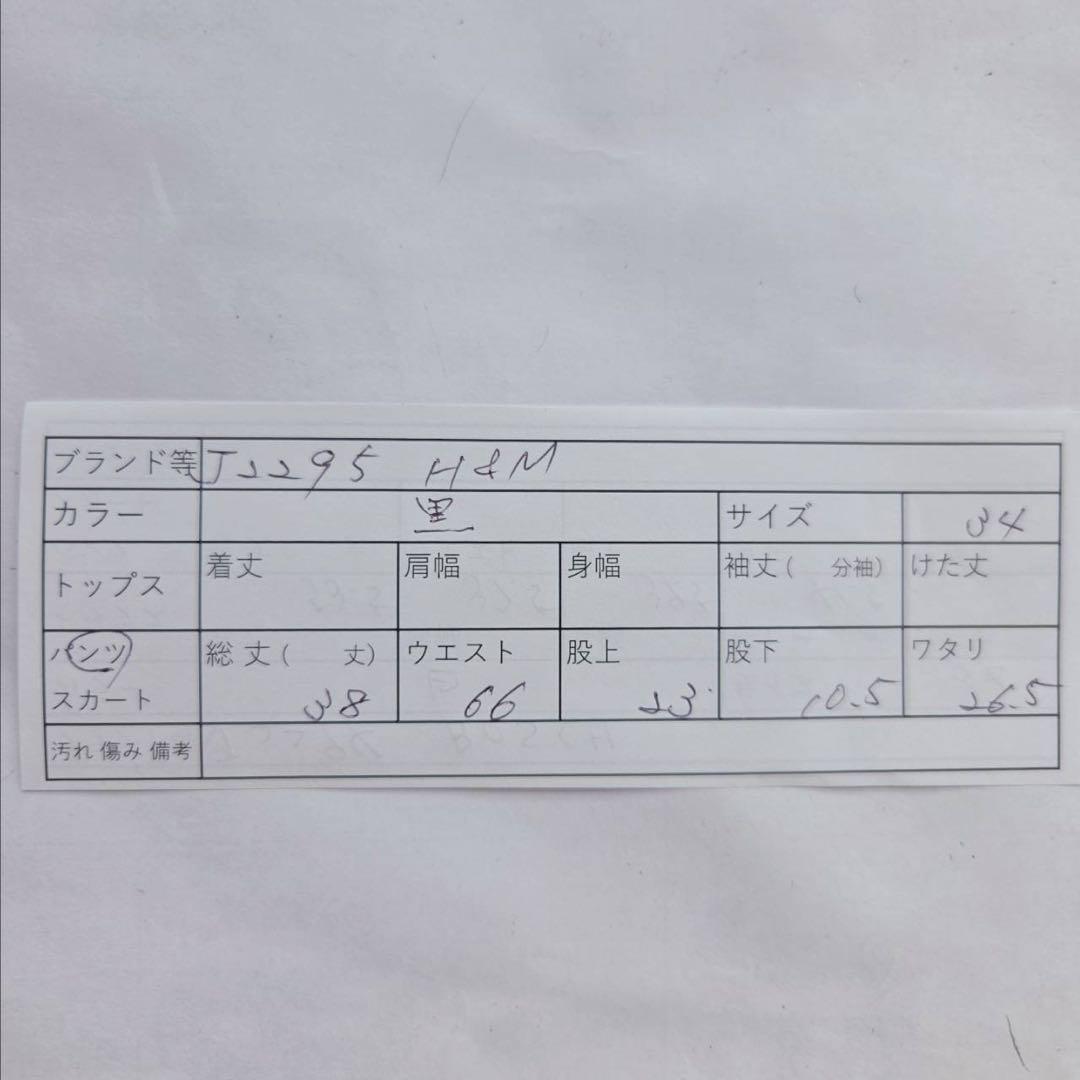 ブランド等 J2295 H&M
カラー 黒 サイズ 34
トップス 着丈 肩幅 身幅 袖丈( 分袖) けた丈
パンツ 総丈( 丈) ウエスト 股上 股下 ワタリ
スカート 38 66 23 10.5 26.5
汚れ 傷み 備考